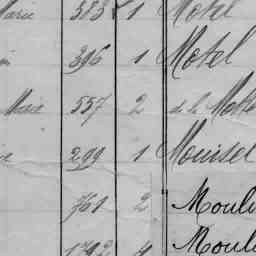 Marie 583 1 Motel
396 1 Motel
Marie 557 2 de la Motte
299 1 Mouisel
761 2 Mouli
1792 4 Mouli